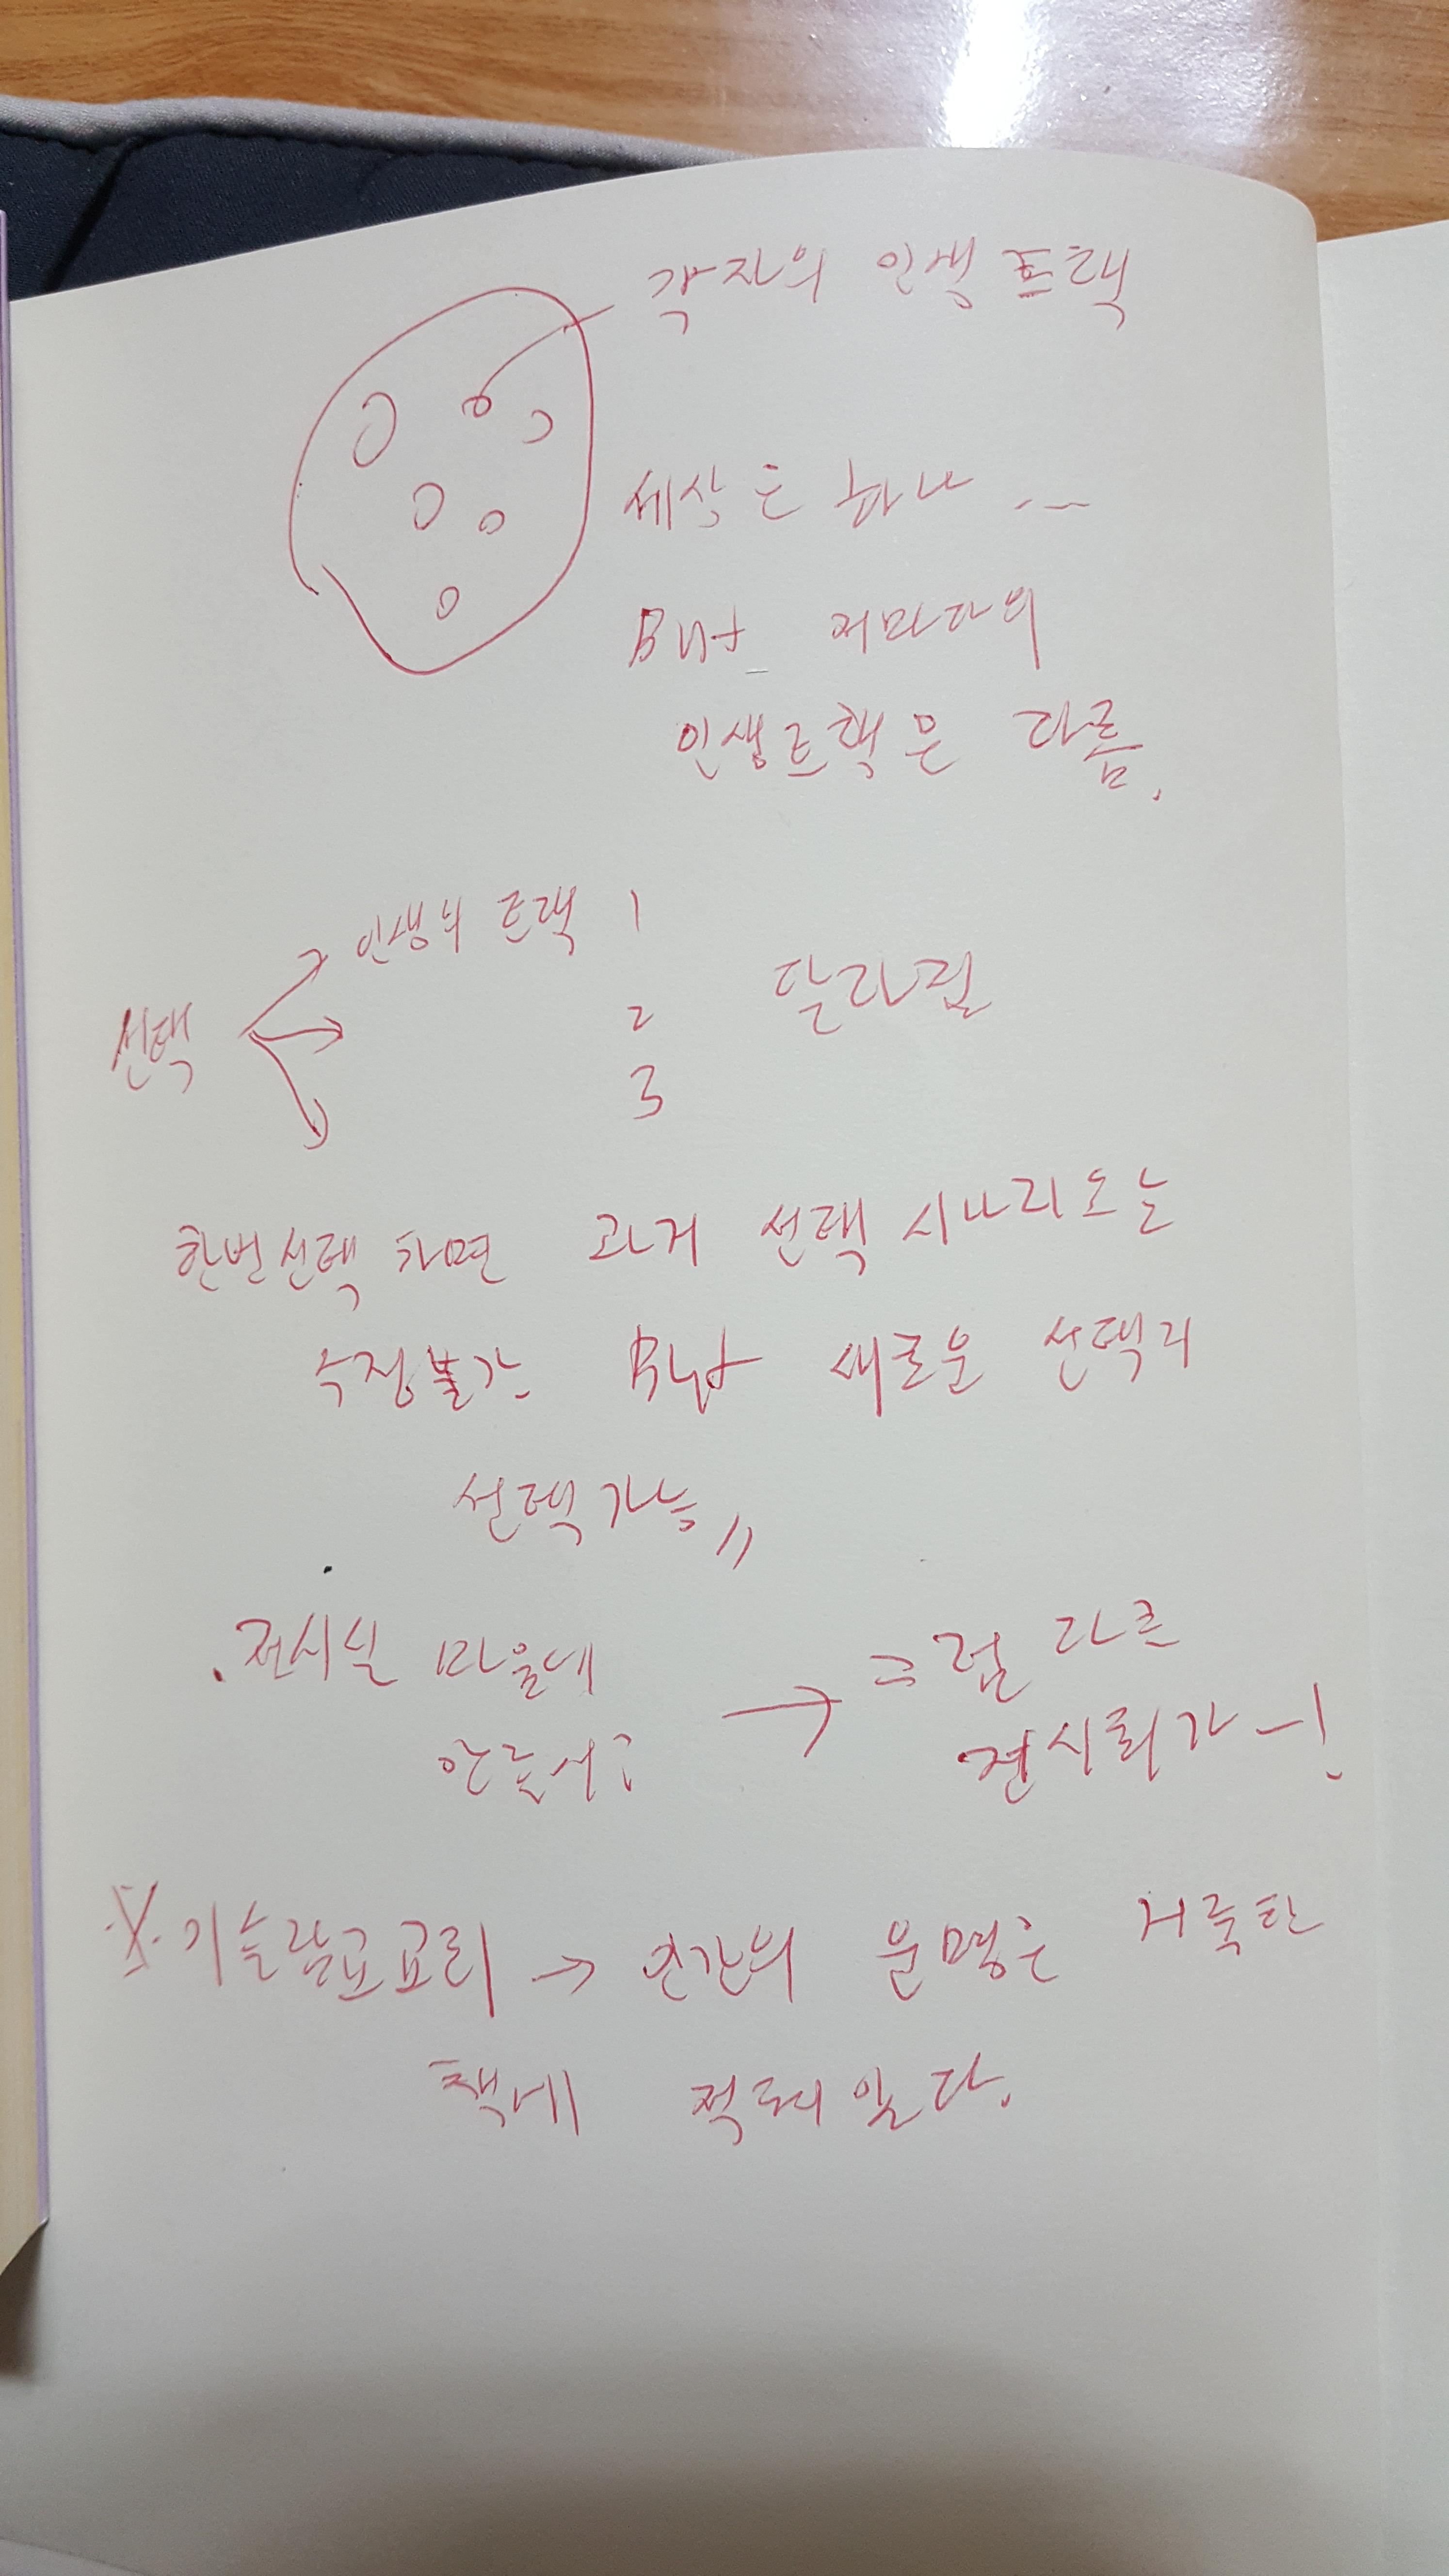 각자의 인생트랙
세상은 하나 ...
But 저마다의
인생트랙은 다름.
인생의 트랙 1
선택 2 달라짐
3
한번선택 하면 과거 선택 시나리오는
수정불가 But 새로운 선택지
선택가능 〃
. 전시실 마음에
안들어? → 그럼 다른
전시회가-!
※ 이슬람교 교리 → 인간의 운명은 거룩한
책에 적혀있다.